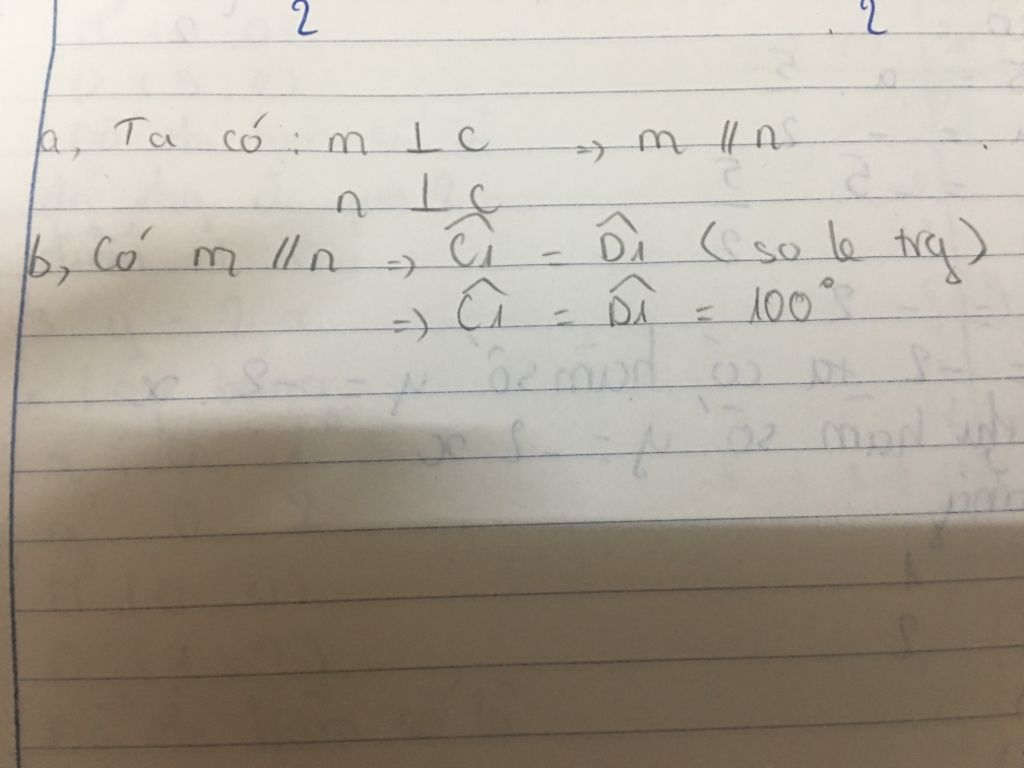 2 2
a, Ta có: m ⊥ c => m // n
n ⊥ c
b, Có m // n => Ĉ1 = D̂1 (so le trg)
=> Ĉ1 = D̂1 = 100°